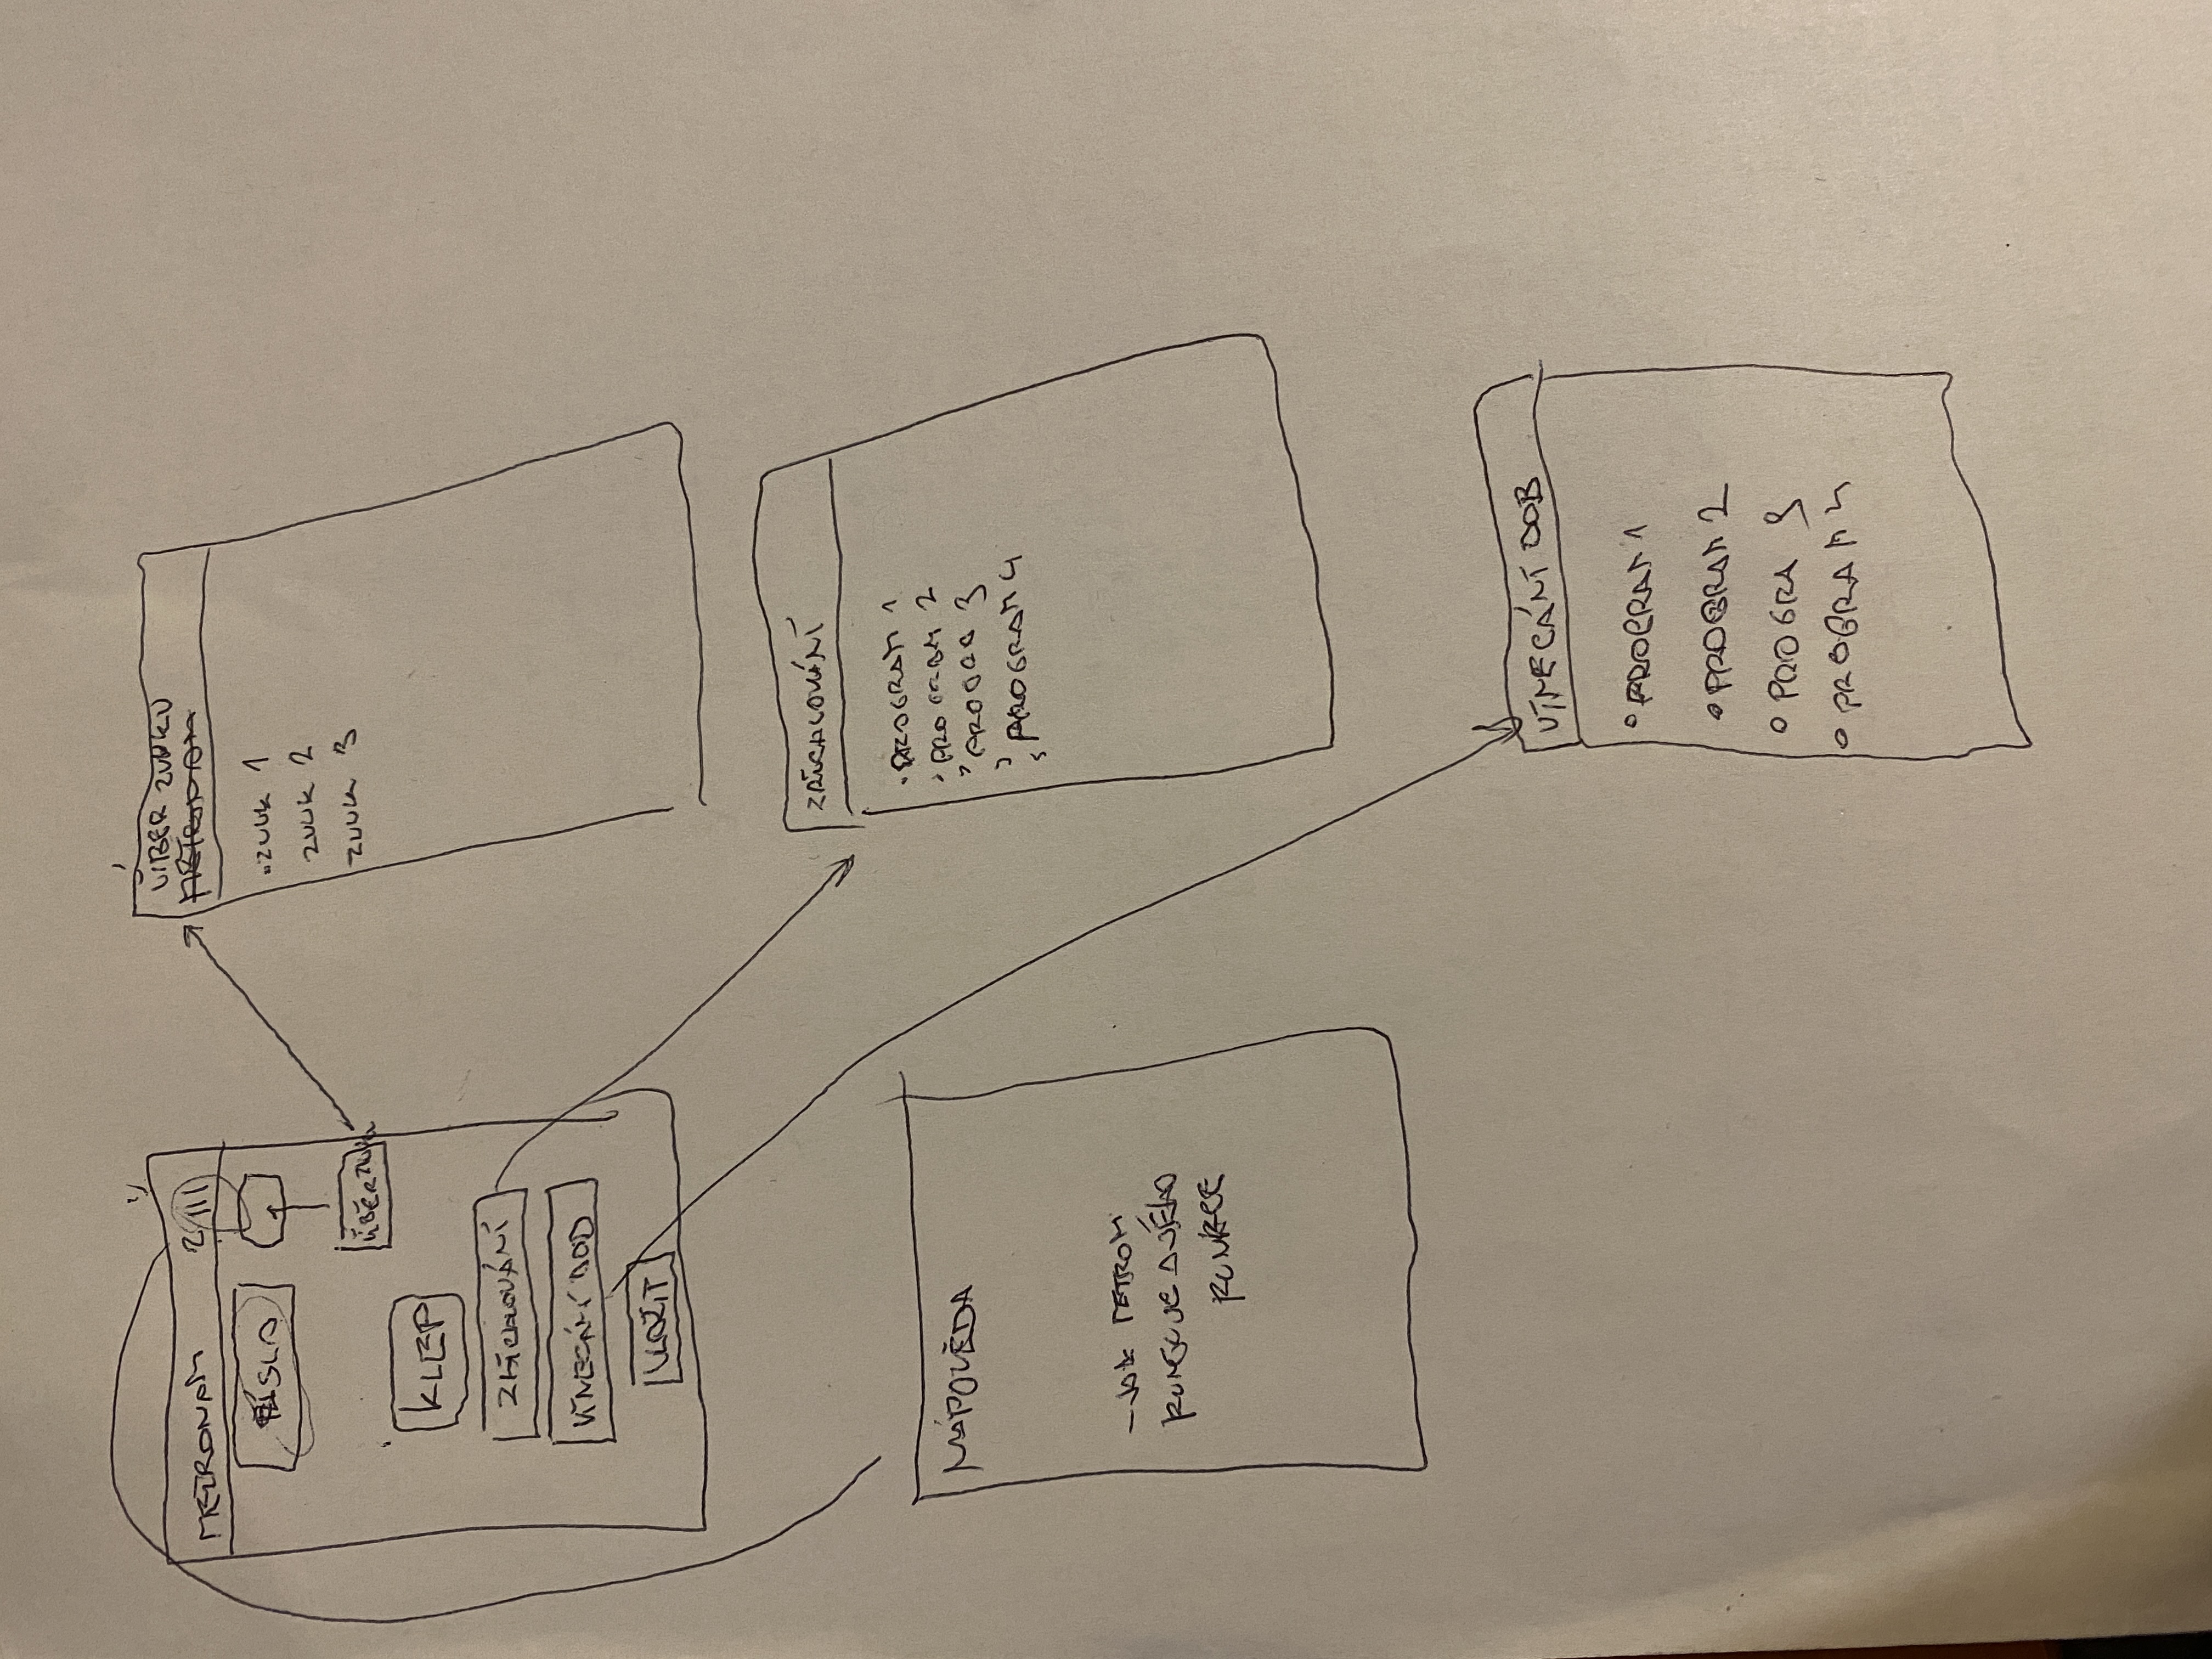 METRONOM
ČÍSLO
KLEP
ZRICHLOVÁNÍ
VÍNECÁNÍ DOB
ULOŽIT
VÍBER ZVUKU
ZVUK 1
ZVUK 2
ZVUK 3
ZRICHLOVÁNÍ
PROGRAM 1
PROGRAM 2
3
PROGRAM 4
NÁPOVĚDA
- JAK METROM
FUNGUJE A JEHO
FUNKCE
VÍNECÁNÍ DOB
PROGRAM 1
PROGRAM 2
PROGRA 3
PROGRAM 4